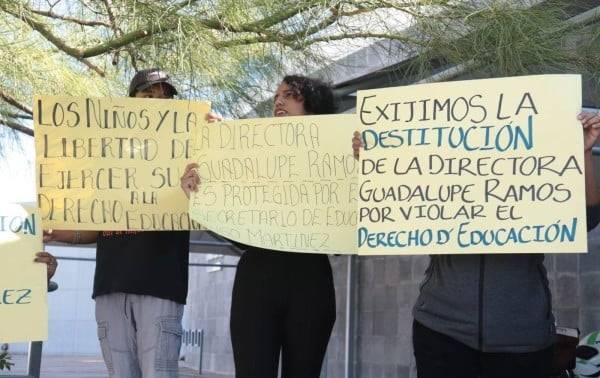 LOS NIÑOS Y LA
LIBERTAD DE
EJERCER SU
DERECHO A LA
EDUCACIÓN
LA DIRECTORA
GUADALUPE RAMOS
ES PROTEGIDA POR E
SECRETARIO DE EDU
MARTINEZ
EXIJIMOS LA
DESTITUCIÓN
DE LA DIRECTORA
GUADALUPE RAMOS
POR VIOLAR EL
DERECHO D' EDUCACIÓN
ION
EZ